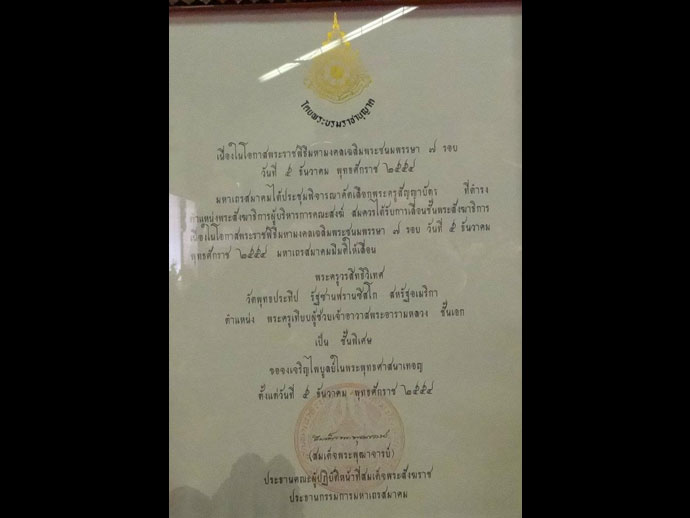 โดยพระบรมราชานุญาต
เนื่องในโอกาสพระราชพิธีมหามงคลเฉลิมพระชนมพรรษา ๗ รอบ
วันที่ ๕ ธันวาคม พุทธศักราช ๒๕๕๔
มหาเถรสมาคมได้ประชุมพิจารณาคัดเลือกพระครูสัญญาบัตร ที่ดำรง
ตำแหน่งพระสังฆาธิการผู้บริหารการคณะสงฆ์ สมควรได้รับการเลื่อนชั้นพระสังฆาธิการ
เนื่องในโอกาสพระราชพิธีมหามงคลเฉลิมพระชนมพรรษา ๗ รอบ วันที่ ๕ ธันวาคม
พุทธศักราช ๒๕๕๔ มหาเถรสมาคมมีมติให้เลื่อน
พระครูวรสิทธิวิเทศ
วัดพุทธประทีป รัฐซานฟรานซิสโก สหรัฐอเมริกา
ตำแหน่ง พระครูเทียบผู้ช่วยเจ้าอาวาสพระอารามหลวง ชั้นเอก
เป็น ชั้นพิเศษ
ขอจงเจริญไพบูลย์ในพระพุทธศาสนาเทอญ
ตั้งแต่วันที่ ๕ ธันวาคม พุทธศักราช ๒๕๕๔
(สมเด็จพระพุฒาจารย์)
ประธานคณะผู้ปฏิบัติหน้าที่สมเด็จพระสังฆราช
ประธานกรรมการมหาเถรสมาคม